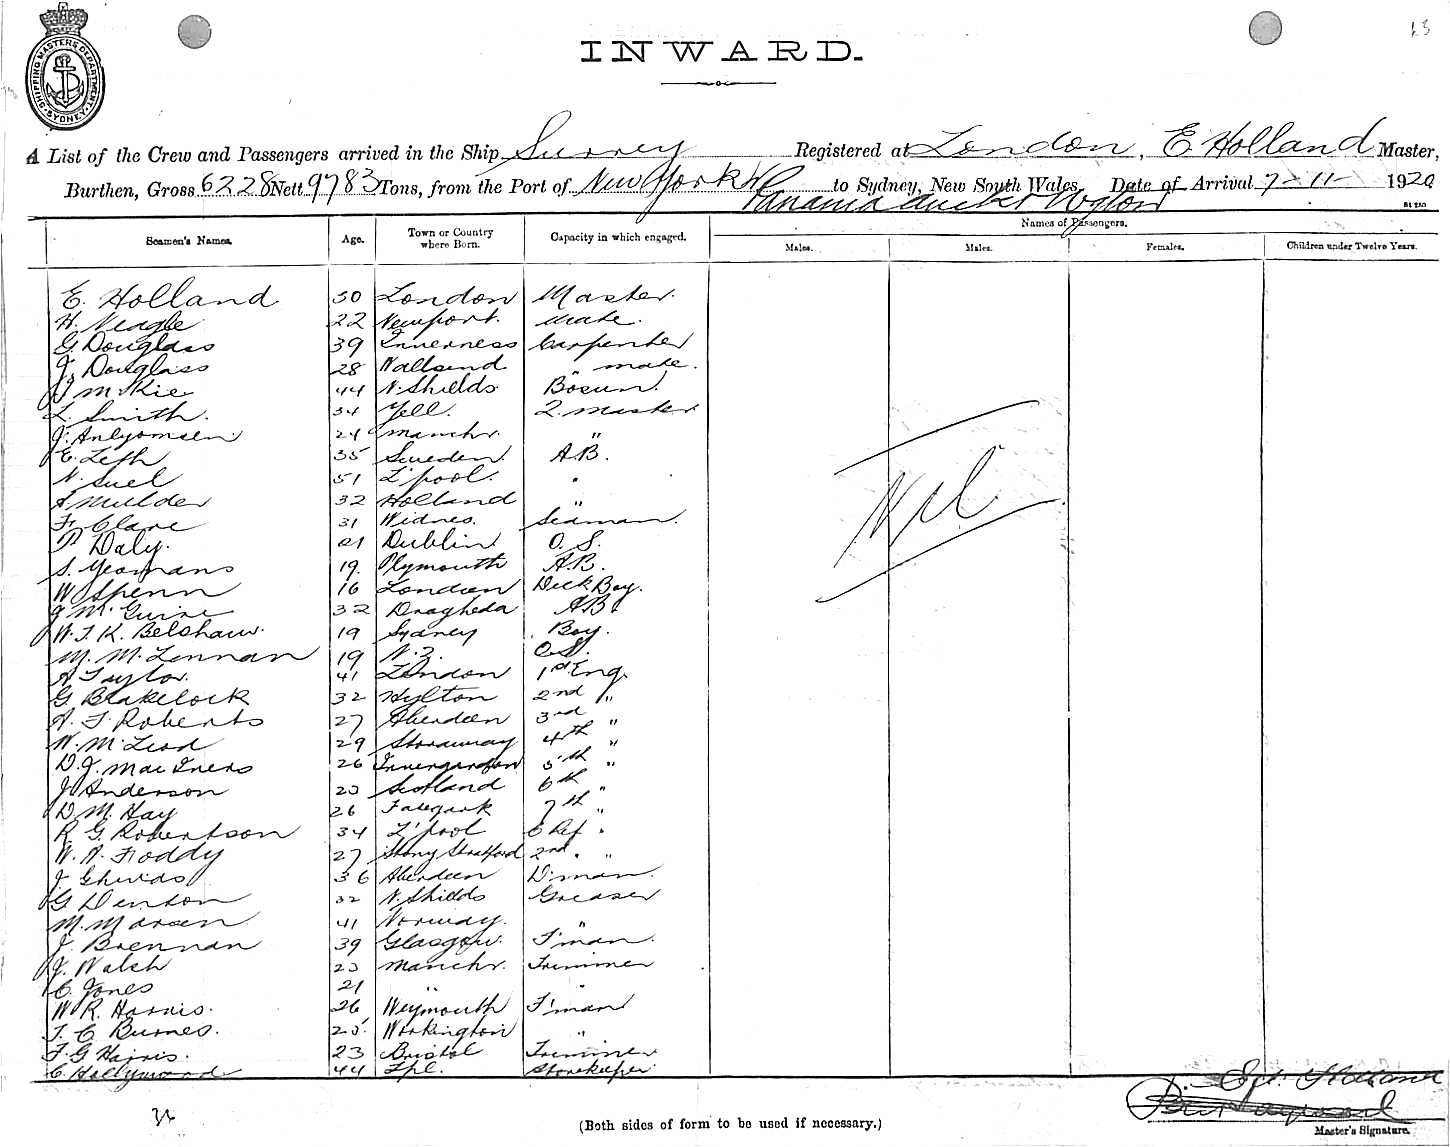 13
INWARD.
SHIPPING MASTERS DEPARTMENT SYDNEY
A List of the Crew and Passengers arrived in the Ship Surrey Registered at London, E Holland Master,
Burthen, Gross 6228 Nett 9783 Tons, from the Port of New York to Sydney, New South Wales, Date of Arrival 7-11- 1920
Panama
Seamen's Names. Age. Town or Country where Born. Capacity in which engaged. Names of Passengers.
Males. Males. Females. Children under Twelve Years.
E. Holland 50 London Master.
H. Neagle 22 Newport. Mate.
G Douglass 39 Inverness Carpenter
J. Douglass 28 Wallsend " mate.
McKie 44 N. Shields Bosun.
L. Smith. 34 Yell. Q. Master
J. 24 Manchr. "
E. 35 Sweden. A.B.
N. Suel 51 L'pool. "
A. Mulder 32 Holland "
F. Clare 31 Widnes. Seaman.
P. Daly. 21 Dublin O.S.
S. Yeomans 19. Plymouth A.B.
W Spenn 16 London Deck Boy.
J McGuire 32 Drogheda AB
W. J. K. Belshaw. 19 Sydney Boy.
M. McLennan 19 N.Z. O.S.
A Taylor. 41 London 1st Eng.
G. Blakelock 32 Hylton 2nd "
A. J. Roberts 27 Aberdeen 3rd "
W. McLeod 29 Stornoway 4th "
D. J. MacInnes 26 Invergordon 5th "
J. Anderson 23 Scotland 6th "
D McHay 26 7th "
R G. Robertson 34 L'pool C Ref "
W. A. Foddy 27 Stony Stratford 2nd " "
J. 36 Aberdeen D'man.
G Denton 32 N. Shields Greaser
M. Marsen 41 Norway. "
J. Brennan 39 Glasgow. F'man.
J. Walsh 23 Manchr. Trimmer
C. Jones 21 " "
W R. Harris. 26 Weymouth F'man
T. C Burnes. 25 Workington "
F. G Harris. 23 Bristol Trimmer
C. Hollywood 44 Lpl. Storekeeper
Nil.
Holland
Master's Signature.
(Both sides of form to be used if necessary.)